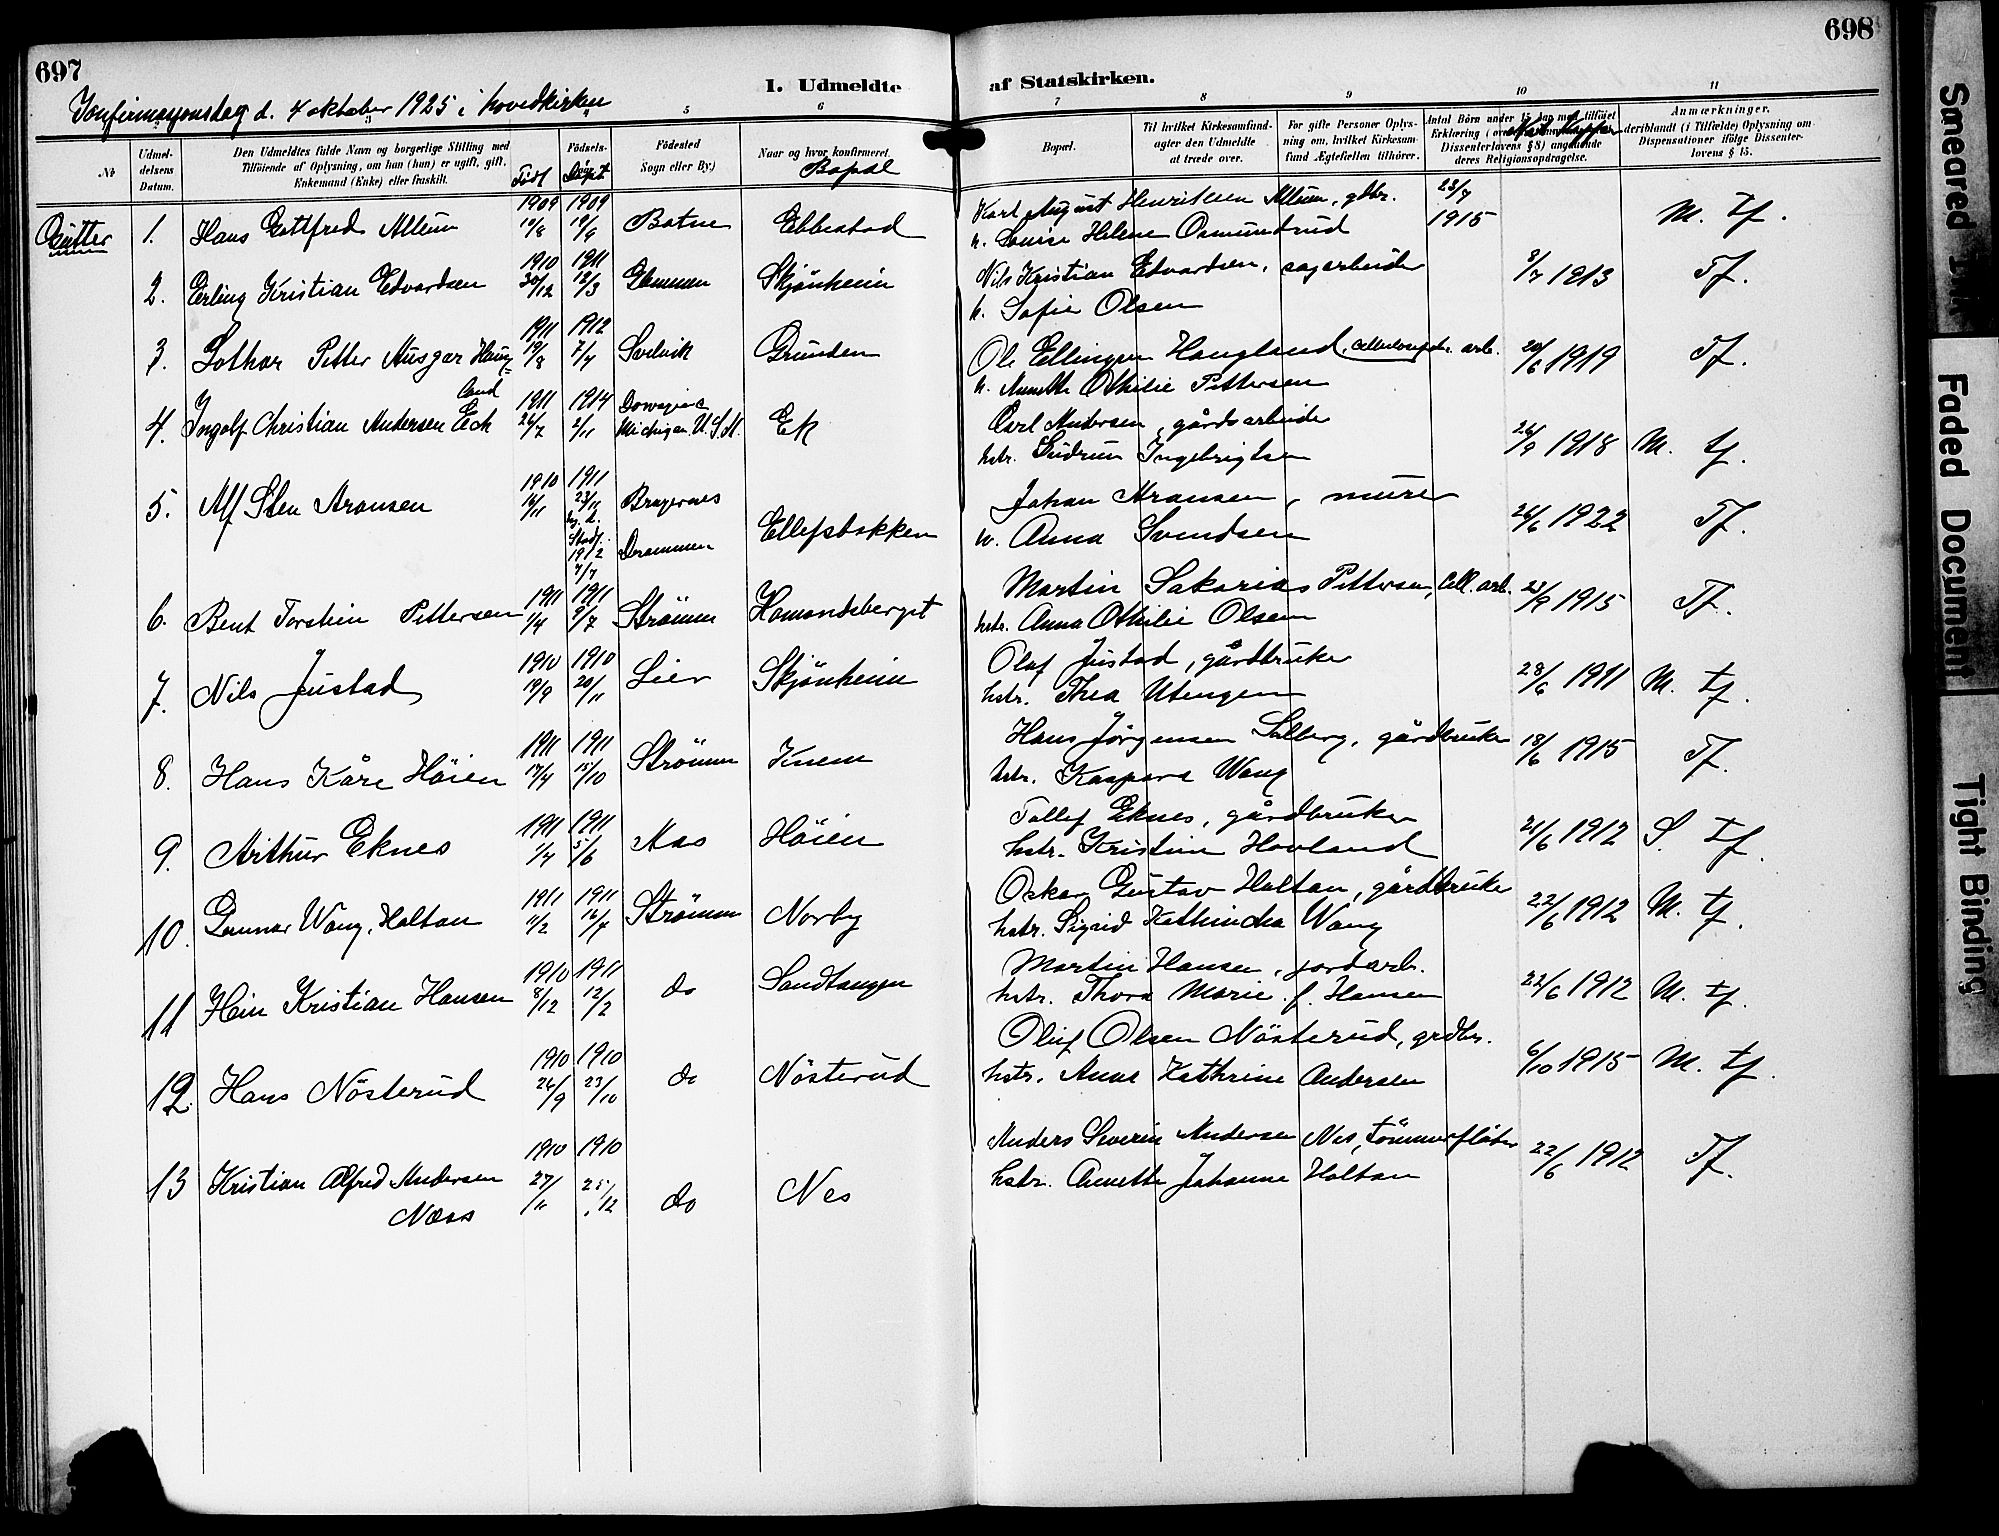 697
698
1. Udmeldte af Statskirken.
Konfirmasjonsdag d. 4 oktober 1925 i hovedkirken
3 5 6 7 8 9 10 11
№
Udmeldelsens Datum.
Den Udmeldtes fulde Navn og borgerlige Stilling med Tilföiende af Oplysning, om han (hun) er ugift, gift, Enkemand (Enke) eller fraskilt.
Födt
Födsels-
Döpt
Födested Sogn eller By.)
Naar og hvor konfirmeret.
Bopæl
Bopæl.
Til hvilket Kirkesamfund agter den Udmeldte at træde over.
For gifte Personer Oplysning om, hvilket Kirkesamfund Ægtefællen tilhörer.
Antal Börn under 15 Aar med tilföiet Erklæring Dissenterlovens § 8) angaaende deres Religionsopdragelse.
Nat. Kopper
Anmærkninger, deriblandt (i Tilfælde) Oplysning om Dispensationer ifölge Dissenterlovens § 15.
Gutter
1. Hans Gottfred Alleum 1909 1909 Botne Ebbestad Karl August Henriksen Alleum, gbr. 23/7 1915 M. tf.
h. Louise Helene Osmundrud
2. Erling Kristian Edvardsen 1910 30/12 1911 12/3 Glemmen Skjönheim Nils Kristian Edvardsen, sagarbeider 3/7 1913 Tf.
h. Sofie Olsen
3. Lothar Petter Ansgar Haugland 1911 19/8 1912 7/4 Svelvik Grunden Ole Ellingsen Haugland, arb. 20/6 1919 Tf.
h. Annette Othilie Pettersen
4. Ingolf Christian Andersen Eek 1911 26/7 1914 2/11 Dowagiac Michigan. U.S.A. Ek Carl Andersen, gårdsarbeider 26/9 1918 M. tf.
hstr. Gudrun Ingebrigtsen
5. Alf Sten Aronsen 1910 16/11 1911 23/11 Bragernes Johan Aronsen, murer 26/6 1922 Tf.
Stadf. 19/2 Drammen Ellefsbakken h. Anna Svendsen
6. Bent Torstein Pettersen 1911 1/4 1911 9/7 Strömm Homansberget Martin Sakarias Pettersen, Cell. arb. 23/9 1915 Tf.
hstr. Anna Othilie Olsen
7. Nils Justad 1910 19/9 1910 20/11 Lier Skjönheim Olaf Justad, gårdbruker 28/6 1911 M. tf.
hstr. Thea Utengen
8. Hans Kåre Höien 1911 17/4 1911 15/10 Strömm Knem Hans Jörgensen Solberg, gårdbruker 18/6 1915 Tf.
hstr. Kaspara Wang
9. Arthur Eknes 1911 1/4 1911 5/6 Aas Höien Tollef Eknes, gårdbruker 21/6 1912 S. tf.
hstr. Kristine Hovland
10. Gunnar Wang Holtan 1911 11/2 1911 16/4 Strömm Norby Oskar Gustav Holtan, gårdbruker 22/6 1912 M. tf.
hstr. Sigrid Kathincka Wang
11 Hein Kristian Hansen 1910 8/12 1911 12/2 do Sandtangen Martin Hansen, jordarb. 22/6 1912 M. tf.
hstr. Thora Marie f. Hansen
12. Hans Nösterud 1910 26/9 1910 23/10 do Nösterud Oluf Olsen Nösterud, grdbr. 6/10 1915 M. tf.
hstr. Anna Kathrine Andersen
13 Kristian Alfred Andersen Næss 1910 27/11 1910 25/12 do Nes Anders Severin Andersen Nes, tömmerflöter 22/6 1912 Tf.
hstr. Annette Johanne Holtan
Smeared Ink
Faded Document
Tight Binding